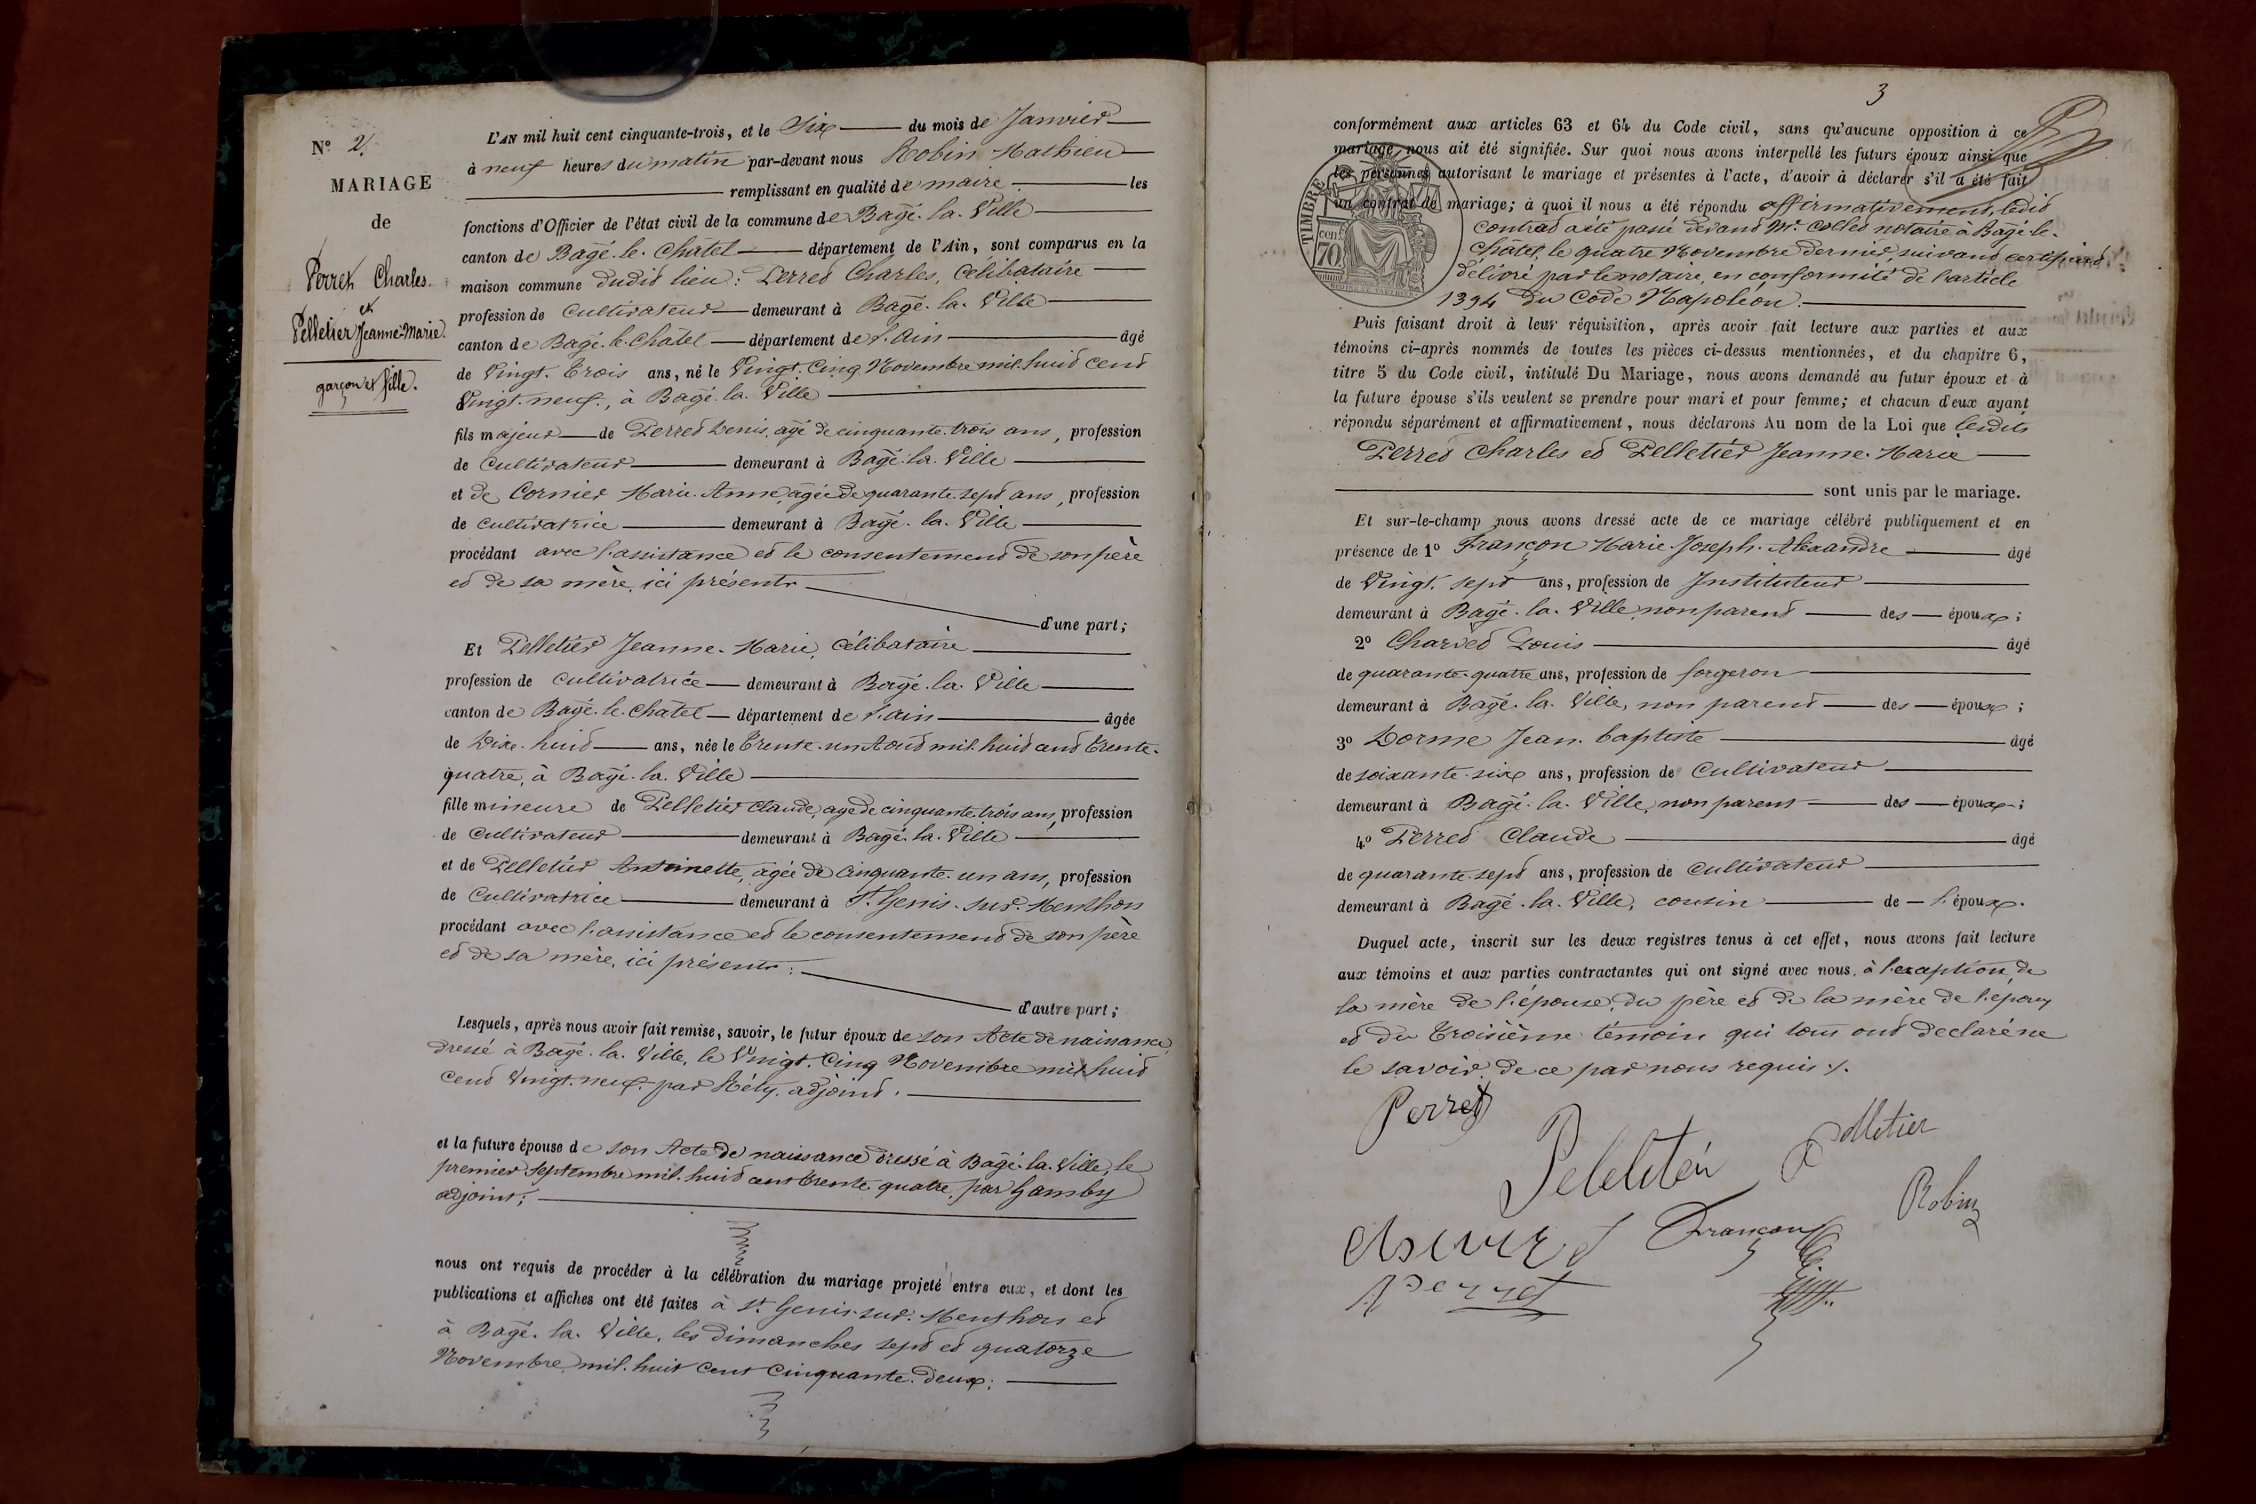 N° 2.
MARIAGE
de
Perret Charles.
et
Pelletier Jeanne-Marie.
garçon et fille.
L'AN mil huit cent cinquante-trois, et le Six du mois de Janvier
à neuf heures du matin par-devant nous Robin Mathieu
remplissant en qualité de maire les
fonctions d'Officier de l'état civil de la commune de Bagé-la-Ville
canton de Bagé-le-Châtel département de l'Ain, sont comparus en la
maison commune dudit lieu : Perret Charles, Célibataire
profession de Cultivateur demeurant à Bagé-la-Ville
canton de Bagé-le-Châtel département de l'Ain âgé
de Vingt-Trois ans, né le Vingt-Cinq Novembre mil-huit cent
Vingt-neuf, à Bagé-la-Ville
fils majeur de Perret Denis, agé de cinquante-trois ans, profession
de Cultivateur demeurant à Bagé-la-Ville
et de Cornier Marie-Anne, agée de quarante-sept ans, profession
de cultivatrice demeurant à Bagé-la-Ville
procédant avec l'assistance et le consentement de son père
et de sa mère, ici présents
d'une part;
Et Pelletier Jeanne-Marie, Célibataire
profession de Cultivatrice demeurant à Bagé-la-Ville
canton de Bagé-le-Châtel département de l'ain âgée
de Dix-huit ans, née le Trente-un Août mil-huit cent Trente-
quatre, à Bagé-la-Ville
fille mineure de Pelletier Claude, agé de cinquante-trois ans, profession
de Cultivateur demeurant à Bagé-la-Ville
et de Pelletier Antoinette, agée de Cinquante-un ans, profession
de Cultivatrice demeurant à St. Genis-sur-Menthon
procédant avec l'assistance et le consentement de son père
et de sa mère, ici présents :
d'autre part;
Lesquels, après nous avoir fait remise, savoir, le futur époux de son Acte de naissance
dressé à Bagé-la-Ville, le Vingt-Cinq Novembre mil huit
cent Vingt-neuf par adjoint.
et la future épouse de son Acte de naissance dressé à Bagé-la-Ville, le
premier Septembre mil-huit cent trente-quatre, par Gamby
adjoint;
nous ont requis de procéder à la célébration du mariage projeté entre eux, et dont les
publications et affiches ont été faites à St. Genis-sur-Menthon et
à Bagé-la-Ville, les dimanches sept et quatorze
Novembre mil-huit cent Cinquante-deux;
3
conformément aux articles 63 et 64 du Code civil, sans qu'aucune opposition à ce
mariage nous ait été signifiée. Sur quoi nous avons interpellé les futurs époux ainsi que
les personnes autorisant le mariage et présentes à l'acte, d'avoir à déclarer s'il a été fait
un contrat de mariage; à quoi il nous a été répondu affirmativement, ledit
contrat a été passé devant Me. Collet notaire à Bagé-le-
Châtel, le quatre Novembre dernier, suivant certificat
délivré par le notaire, en conformité de l'article
1394 du Code Napoléon.
TIMBRE
cent.
70
Puis faisant droit à leur réquisition, après avoir fait lecture aux parties et aux
témoins ci-après nommés de toutes les pièces ci-dessus mentionnées, et du chapitre 6,
titre 5 du Code civil, intitulé Du Mariage, nous avons demandé au futur époux et à
la future épouse s'ils veulent se prendre pour mari et pour femme; et chacun d'eux ayant
répondu séparément et affirmativement, nous déclarons Au nom de la Loi que lesdits
Perret Charles et Pelletier Jeanne-Marie
sont unis par le mariage.
Et sur-le-champ nous avons dressé acte de ce mariage célébré publiquement et en
présence de 1° Françon Marie-Joseph-Alexandre âgé
de Vingt-sept ans, profession de Instituteur
demeurant à Bagé-la-Ville, non parent des époux;
2° Charvet Louis âgé
de quarante-quatre ans, profession de forgeron
demeurant à Bagé-la-Ville, non parent des époux;
3° Dorme Jean-baptiste âgé
de soixante-six ans, profession de Cultivateur
demeurant à Bagé-la-Ville, non parent des époux;
4° Perret Claude âgé
de quarante-sept ans, profession de Cultivateur
demeurant à Bagé-la-Ville, cousin de l'époux.
Duquel acte, inscrit sur les deux registres tenus à cet effet, nous avons fait lecture
aux témoins et aux parties contractantes qui ont signé avec nous, à l'exception de
la mère de l'épouse, du père et de la mère de l'époux
et du Troisième témoin qui tous ont declaré ne
le savoir de ce par nous requis ./.
Perret
Pelletier
Robin
Françon
Perret